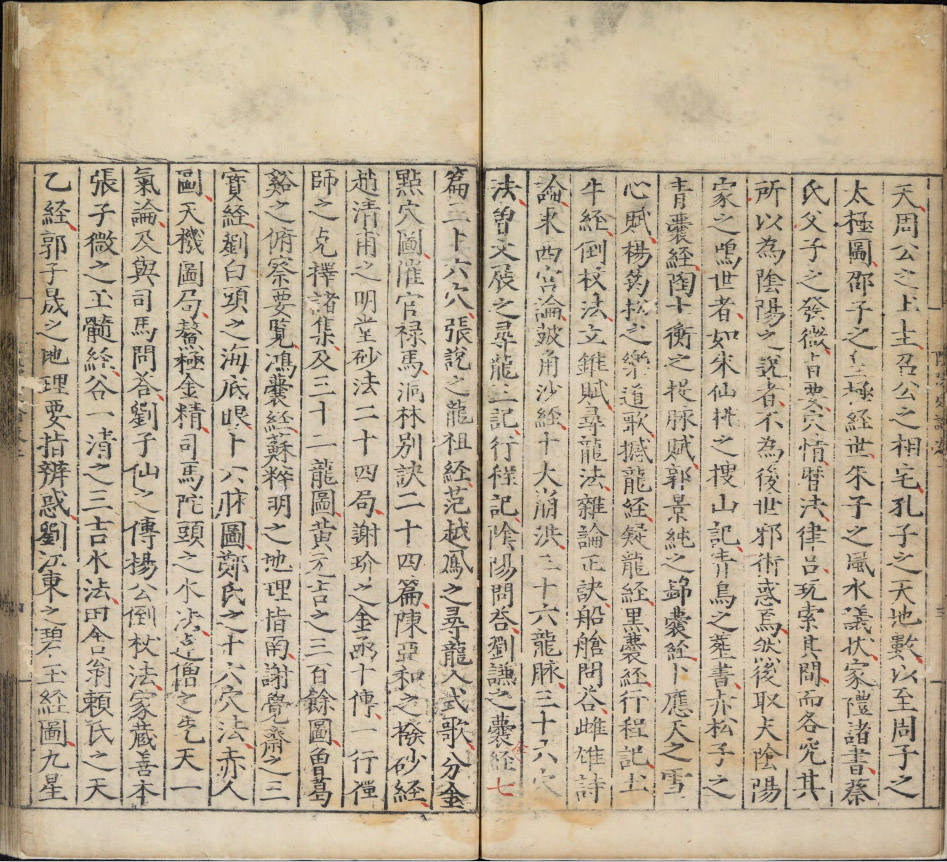 天周公之上士召公之相宅孔子之天地數以至周子之
太極圖邵子之皇極經世朱子之風水儀狀家禮諸書蔡
氏父子之發微占要穴情曆法律呂玩索其間而各究其
所以為陰陽之說者不為後世邪術惑焉然後取夫陰陽
家之鳴世者如朱仙桃之搜山記青烏之葬書赤松子之
青囊經陶士衡之捉脉賦郭景純之錦囊經卜應天之雪
心賦楊筠松之樂道歌撼龍經疑龍經黑囊經行程記土
牛經倒杖法立錐賦尋龍法雜論正訣船艙問答雌雄詩
論東西宮論皷角沙經十大崩洪三十六龍脉三十六穴
法曽文展之尋龍三記行程記陰陽問答劉謙之囊經七
篇三十六穴張說之龍祖經范越鳳之尋龍入式歌分金
點穴圖催官禄馬洞林別訣二十四篇陳亞和之撥砂經
趙清甫之明堂砂法二十四局謝玠之金函十傳一行禪
師之克擇諸集及三十二龍圖黃元吉之三百餘圖魯葛
谿之俯察要覧鴻囊經蘇粹明之地理指南謝覺齋之三
寳經劉白頭之海底眼十六䏢圖鄭氏之十六穴法赤人
圖天機圖局鰲極金精司馬陀頭之水法達僧之先天一
氣論及與司馬問答劉子仙之傳楊公倒杖法家蔵善本
張子微之玉髓經谷一清之三吉水法田舍翁頼氏之天
乙經郭子晟之地理要指辨惑劉江東之碧玉經圖九星